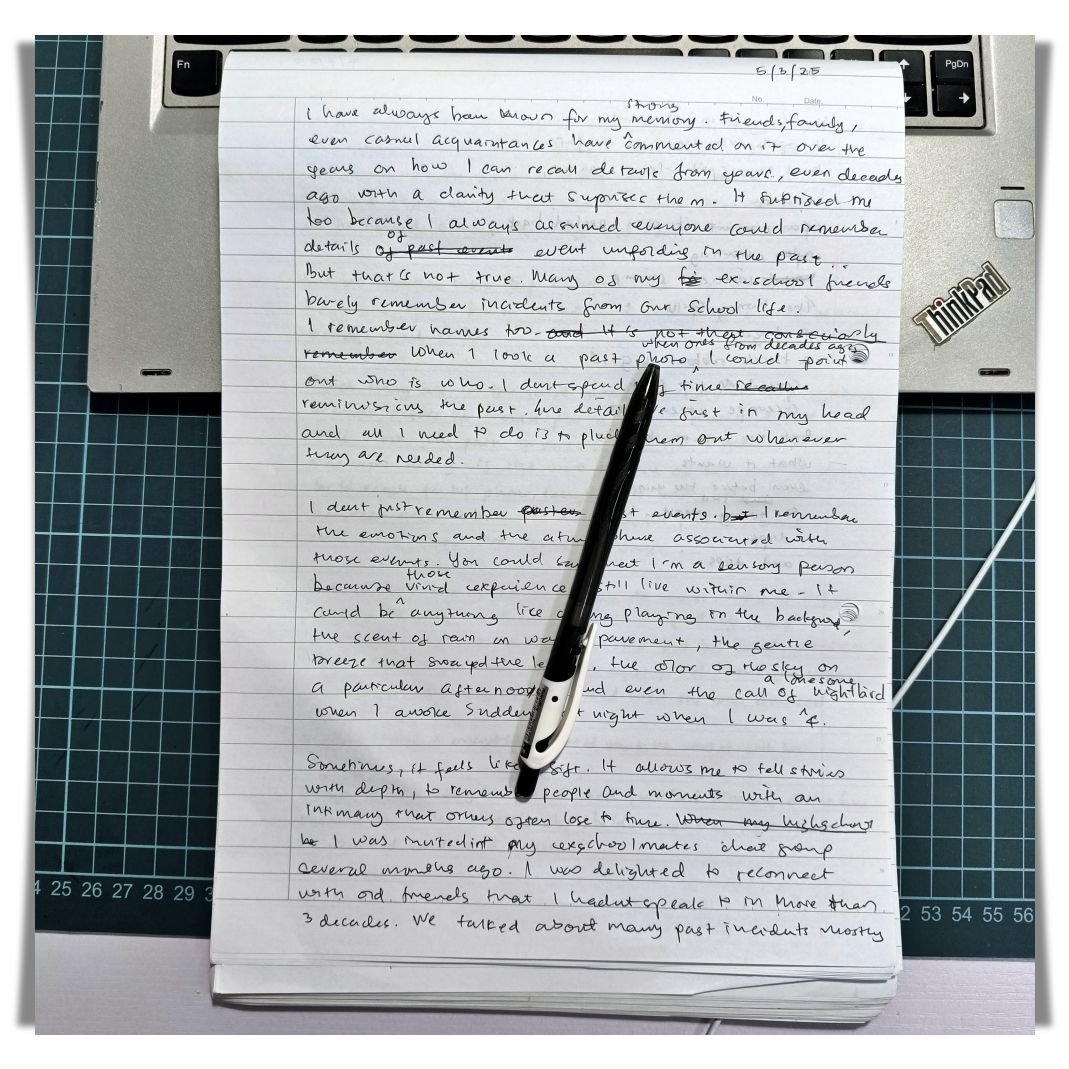 Fn
PgDn
5/3/25
No.
Date.
strong
I have always been known for my ^ memory. Friends, family,
even casual acquaintances have commented on it over the
years on how I can recall details from years, even decades
ago with a clarity that suprises them. It suprised me
too because I always assumed everyone could remember
of
details of past events event unfolding in the past...
But that's not true. Many of my ex-school friends
barely remember incidents from our school life.
I remember names too. and it's not that consciously
when ones from decades ago
remember When I look a past photo ^ I could point
out who is who. I dont spend my time
the past. The details just in my head
and all I need to do is to pluck them out whenever
they are needed.
I dont just remember past events. but I remember
the emotions and the associated with
those events. You could say that I'm a sensory person
those
because vivid experience still live within me. It
could be ^ anything like playing in the
the scent of rain on pavement, the gentle
breeze that swayed the the color of the sky on
a lonesome
a particular afternoon and even the call of nightbird
when I awoke night when I was ^ 4.
Sometimes, it feels like gift. It allows me to tell stories
with depth, to remember people and moments with an
intimacy that others often lose to time. When my highschool
I was invited my exschoolmates chat group
several months ago. I was delighted to reconnect
with old friends that I hadnt speak to in more than
3 decades. We talked about many past incidents mostly
ThinkPad
25 26 27 28 29
53 54 55 56